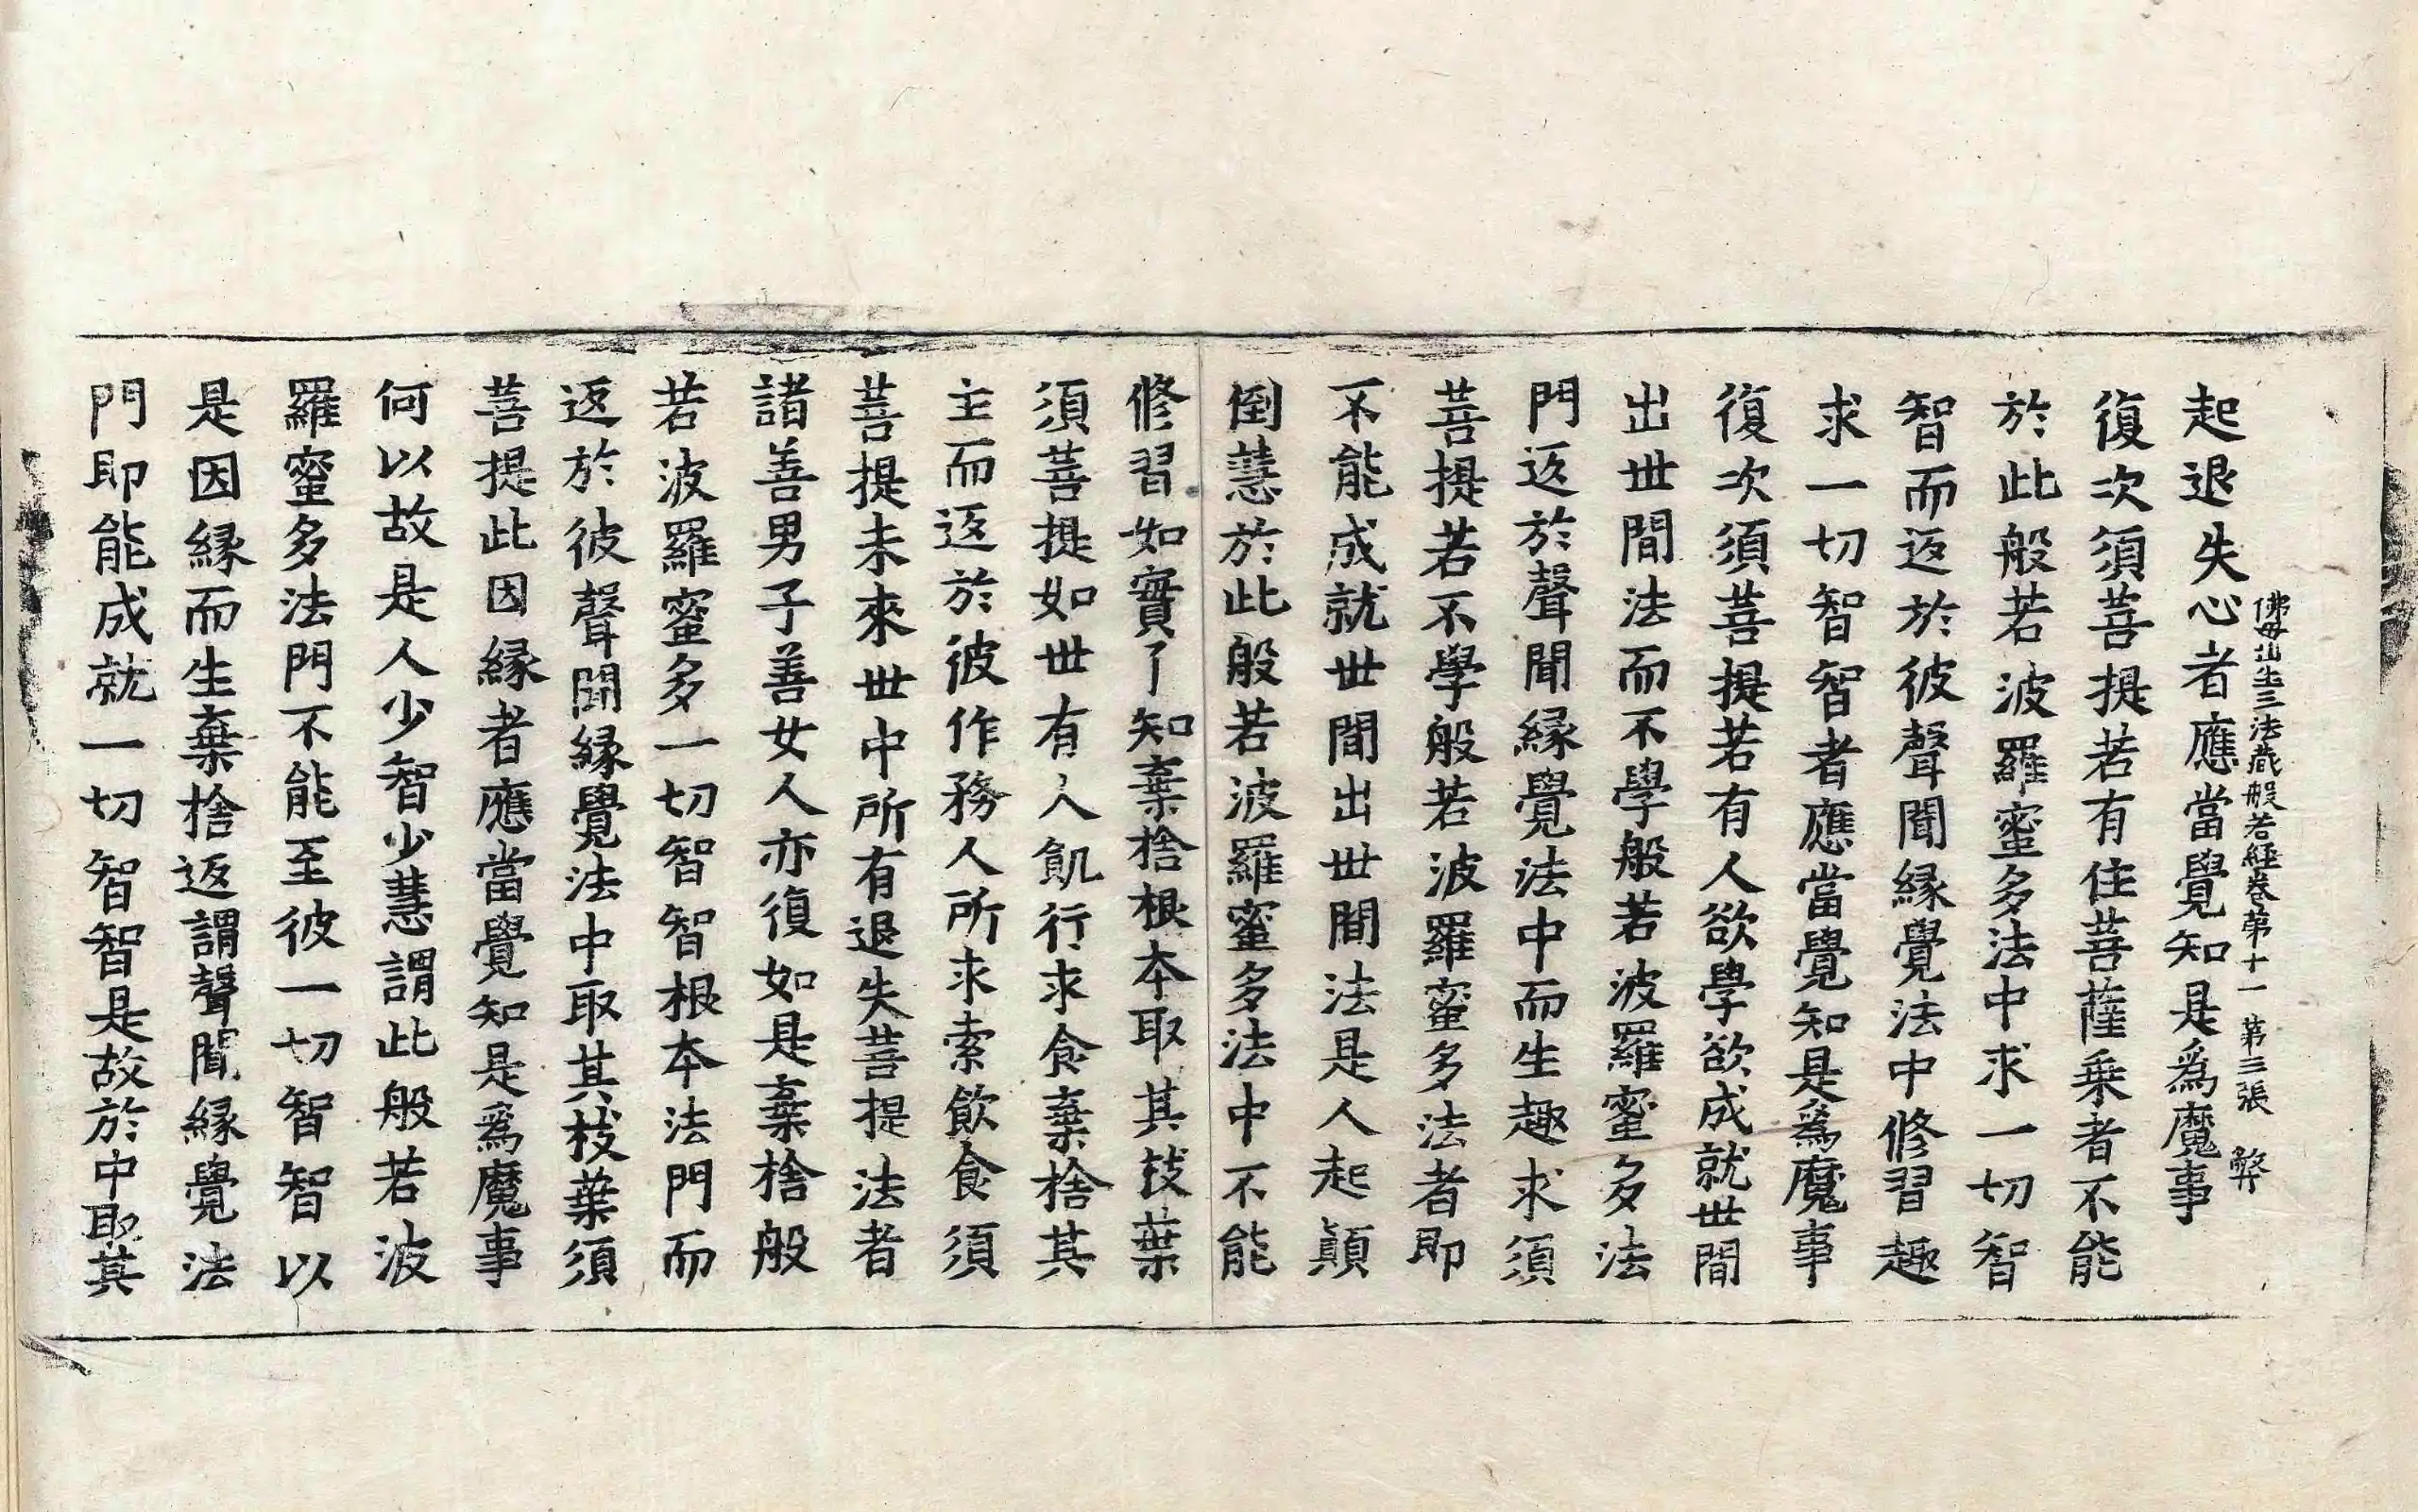 佛母出生三法藏般若經卷第十一 第三張 弊
起退失心者應當覺知是爲魔事
復次須菩提若有住菩薩乘者不能
於此般若波羅蜜多法中求一切智
智而返於彼聲聞緣覺法中修習趣
求一切智智者應當覺知是爲魔事
復次須菩提若有人欲學欲成就世間
出世間法而不學般若波羅蜜多法
門返於聲聞緣覺法中而生趣求須
菩提若不學般若波羅蜜多法者即
不能成就世間出世間法是人起顚
倒慧於此般若波羅蜜多法中不能
修習如實了知棄捨根本取其枝葉
須菩提如世有人飢行求食棄捨其
主而返於彼作務人所求索飮食須
菩提未來世中所有退失菩提法者
諸善男子善女人亦復如是棄捨般
若波羅蜜多一切智智根本法門而
返於彼聲聞緣覺法中取其枝葉須
菩提此因緣者應當覺知是爲魔事
何以故是人少智少慧謂此般若波
羅蜜多法門不能至彼一切智智以
是因緣而生棄捨返謂聲聞緣覺法
門即能成就一切智智是故於中取其